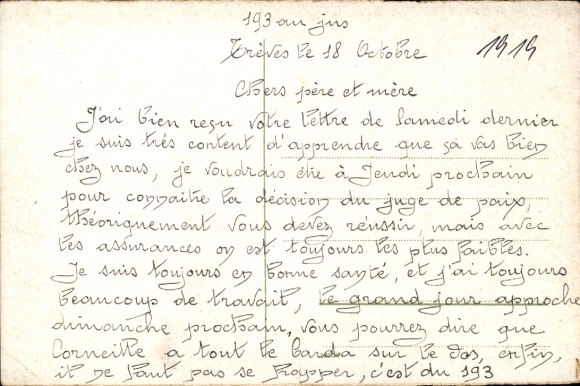 193 au jus
Trèves le 18 Octobre 1919
Chers père et mère
J'ai bien reçu votre lettre de Samedi dernier
je suis trés content d'apprendre que ça vas bien
chez nous, je voudrais être à Jeudi prochain
pour connaitre la décision du juge de paix,
théoriquement vous devez réussir, mais avec
les assurances on est toujours les plus faibles.
Je suis toujours en bonne santé, et j'ai toujours
beaucoup de travail, le grand jour approche
dimanche prochain, vous pourrez dire que
Corneille a tout le barda sur le dos, enfin,
il ne faut pas se frapper, c'est du 193